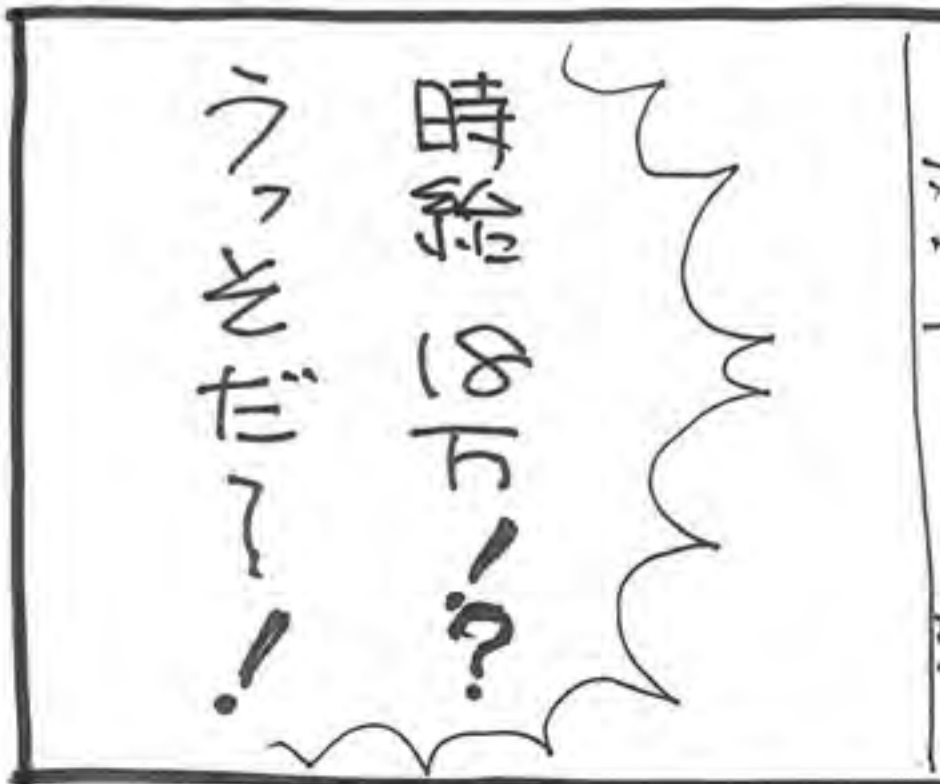 時給18万!?
うっそだ〜!